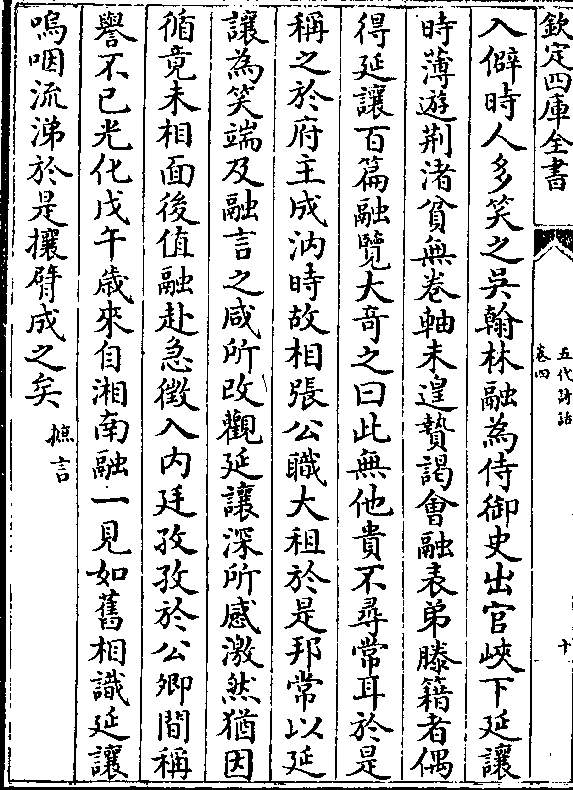 欽定四庫全書
五代詩話
卷四
十
入僻時人多笑之吳翰林融為侍御史出官峽下延讓
時薄遊荆渚貧無卷軸未遑贄謁會融表弟滕籍者偶
得延讓百篇融覽大竒之曰此無他貴不尋常耳於是
稱之於府主成汭時故相張公職大租於是邦常以延
讓為笑端及融言之咸所改觀延讓深所感激然猶因
循竟未相面後值融赴急徴入内廷孜孜於公卿間稱
譽不已光化戊午歳來自湘南融一見如舊相識延讓
嗚咽流涕於是攘臂成之矣 摭言